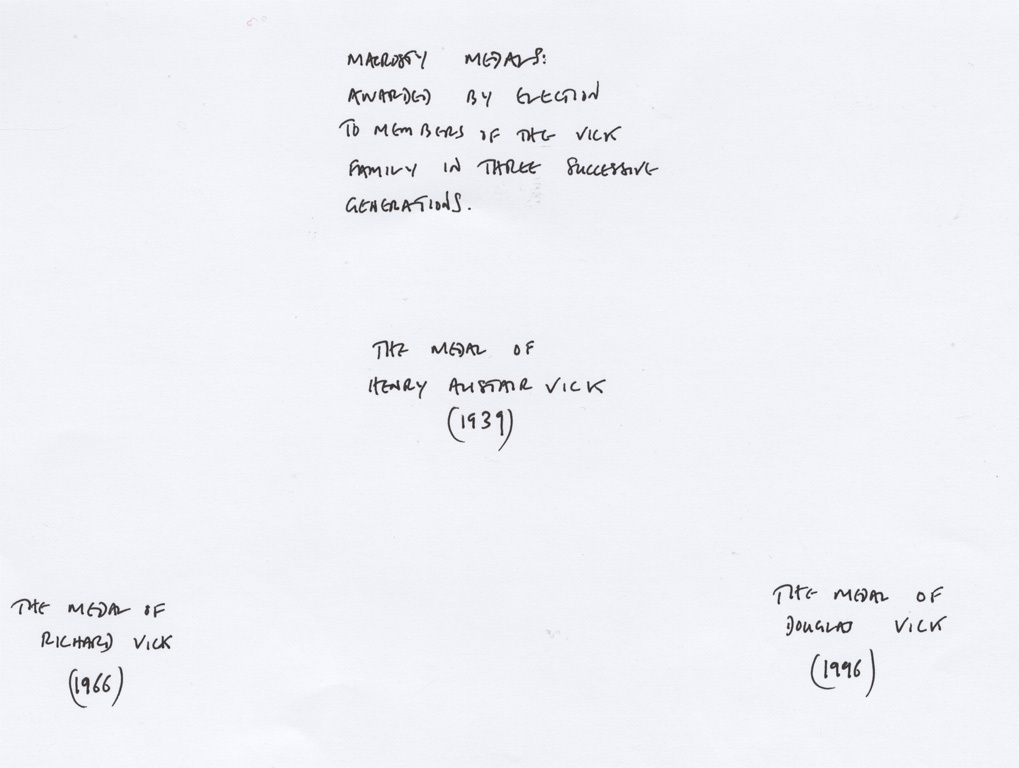 MACROSTY MEDALS:
AWARDED BY ELECTION
TO MEMBERS OF THE VICK
FAMILY IN THREE SUCCESSIVE
GENERATIONS.
THE MEDAL OF
HENRY ALISTAIR VICK
(1939)
THE MEDAL OF
RICHARD VICK
(1966)
THE MEDAL OF
DOUGLAS VICK
(1996)